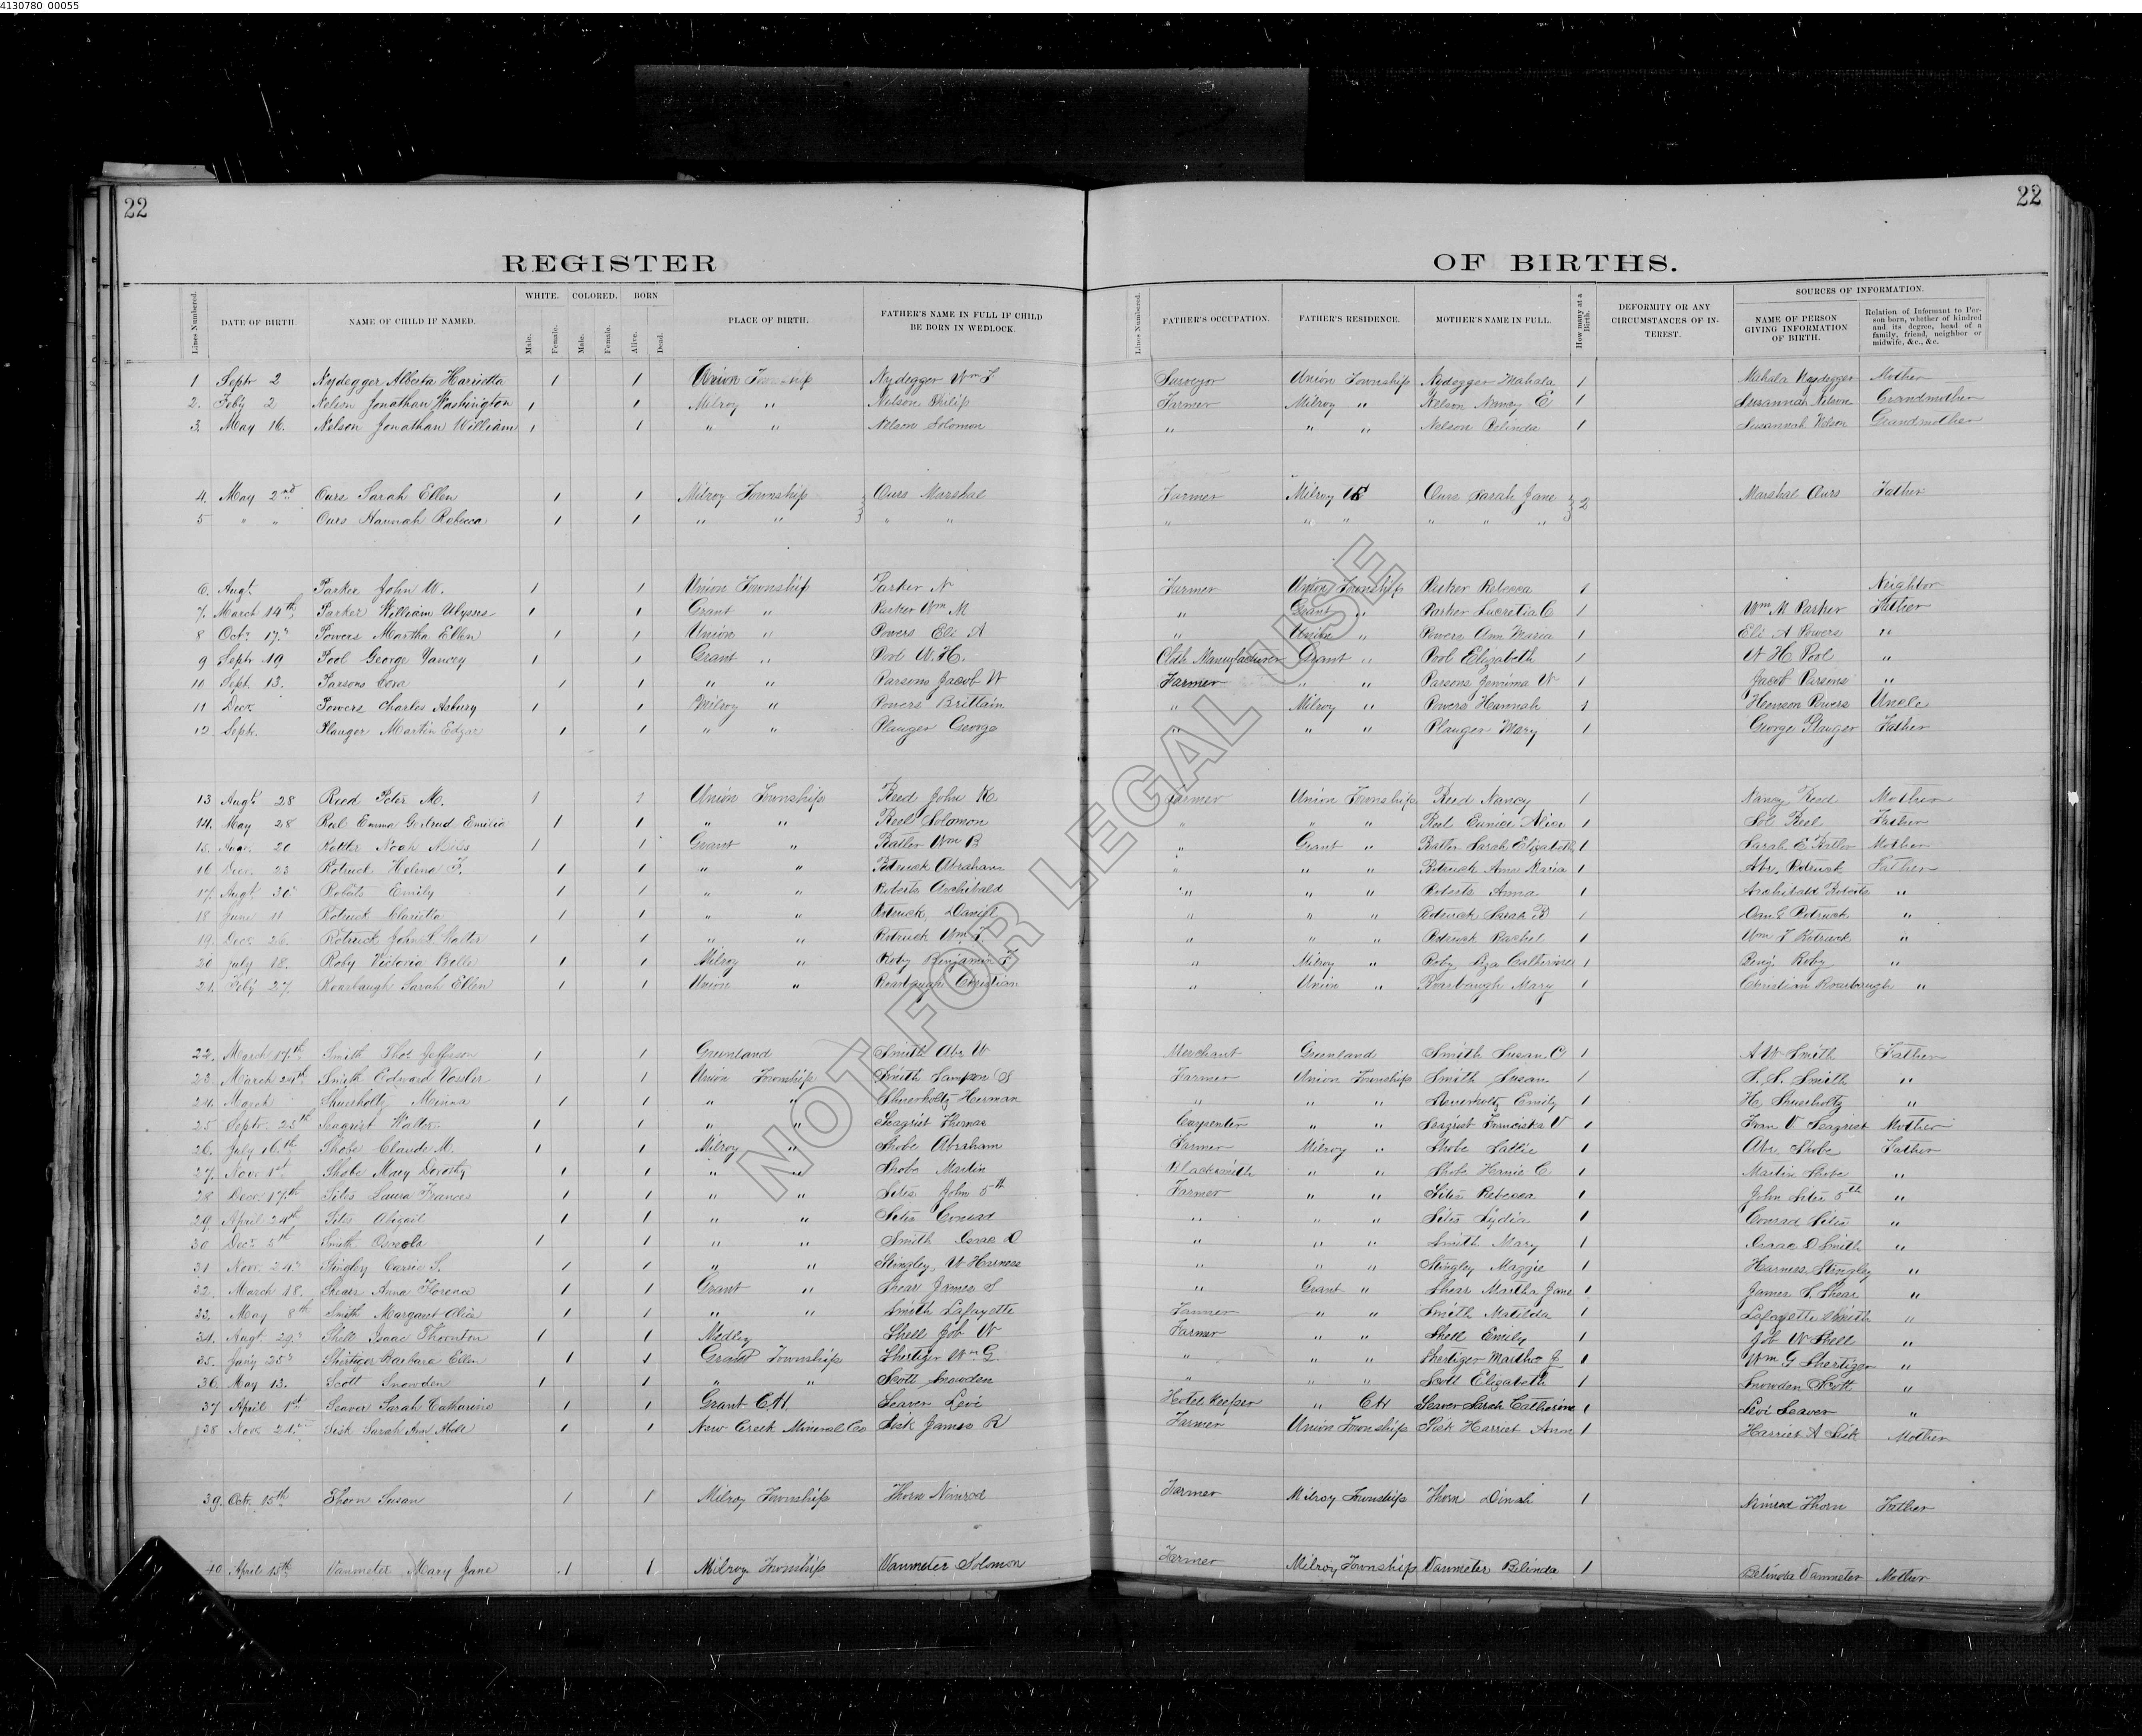 4130780_00055
22
22
REGISTER OF BIRTHS.
Lines Numbered. DATE OF BIRTH. NAME OF CHILD IF NAMED. WHITE. Male. Female. COLORED. Male. Female. BORN Alive. Dead. PLACE OF BIRTH. FATHER'S NAME IN FULL IF CHILD BE BORN IN WEDLOCK. Lines Numbered. FATHER'S OCCUPATION. FATHER'S RESIDENCE. MOTHER'S NAME IN FULL. How many at a Birth. DEFORMITY OR ANY CIRCUMSTANCES OF INTEREST. SOURCES OF INFORMATION. NAME OF PERSON GIVING INFORMATION OF BIRTH. Relation of Informant to Person born, whether of kindred and its degree, head of a family, friend, neighbor or midwife, &c., &c.
1 Septr 2 Nydegger Alberta Harrietta 1 1 Union Township Nydegger Wm F. Surveyor Union Township Nydegger Mahala 1 Mahala Nydegger Mother
2. Feby 2 Nelson Jonathan Washington 1 1 Milroy " Nelson Philip Farmer Milroy " Nelson Nancy E 1 Susannah Nelson Grandmother
3. May 16. Nelson Jonathan William 1 1 " " Nelson Solomon " " " Nelson Belinda 1 Susannah Nelson Grandmother
4. May 2nd Ours Sarah Ellen 1 1 Milroy Township Ours Marshal Farmer Milroy Ours Sarah Jane 2 Marshal Ours Father
5 " " Ours Hannah Rebecca 1 1 " " " " " " " " " "
6. Augt. Parker John W. 1 1 Union Township Parker N Farmer Union Township Parker Rebecca 1 Neighbor
7. March 14th Parker William Ulysses 1 1 Grant " Parker Wm M " Grant " Parker Lucretia C 1 Wm M Parker Father
8 Octr 17. Powers Martha Ellen 1 1 Union " Powers Eli A " Union " Powers Ann Maria 1 Eli A Powers "
9 Septr 19 Pool George Yancey 1 1 Grant " Pool W. H. Cloth Manufacturer Grant " Pool Elizabeth 1 W H Pool "
10 Sept. 13. Parsons Cora 1 1 " " Parsons Jacob W Farmer " " Parsons Jemima W 1 Jacob Parsons "
11 Decr. Powers Charles Asbury 1 1 Milroy " Powers Brittain " Milroy " Powers Hannah 1 Henson Powers Uncle
12 Septr. Plauger Martin Edgar 1 1 " " Plauger George " " " Plauger Mary 1 George Plauger Father
13 Augt 28 Reed Peter M. 1 1 Union Township Reed John K. Farmer Union Township Reed Nancy 1 Nancy Reed Mother
14. May 28 Reel Emma Gertrud Emilie 1 1 " " Reel Solomon " " " Reel Eunice Alice 1 Sol Reel Father
15. 20 Noah 1 1 Grant " Ratler Wm B " Grant " Ratler Sarah Elizabeth 1 Sarah E Ratler Mother
16 Decr. 23 Rotruck Helena F. 1 1 " " Rotruck Abraham " " " Rotruck Ann Maria 1 Abr. Rotruck Father
17. Augt 30 Roberts Emily 1 1 " " Roberts Archibald " " " Roberts Anna 1 Archibald Roberts "
18 June 11 Rotruck Clarietta 1 1 " " Rotruck Daniel " " " Rotruck Sarah B 1 Danl Rotruck "
19. Decr 26. Rotruck John S. Walter 1 1 " " Rotruck Wm F. " " " Rotruck Rachel 1 Wm F Rotruck "
20 July 18. Roby Victoria Belle 1 1 Milroy " Roby Benjamin F " Milroy " Roby Catherine 1 Benj. Roby "
21. Feby 27. Roarbaugh Sarah Ellen 1 1 Union " Roarbaugh Christian " Union " Roarbaugh Mary 1 Christian Roarbaugh "
22. March 17th Smith Thos Jefferson 1 1 Greenland Smith Abr W Merchant Greenland Smith Susan C 1 A W Smith Father
23. March 24th Smith Edward Vossler 1 1 Union Township Smith Sampson S Farmer Union Township Smith Susan 1 S. S. Smith "
24. March Shuerholtz Minna 1 1 " " Shuerholtz Herman " " " Shuerholtz Emily 1 H. Shuerholtz "
25 Septr. 25th Seagrist Walter 1 1 " " Seagrist Thomas Carpenter " " Seagrist Franciska V 1 Fran V Seagrist Mother
26. July 16th Shobe Claude M. 1 1 Milroy " Shobe Abraham Farmer Milroy " Shobe Sallie 1 Abr. Shobe Father
27. Novr 1st Shobe Mary Dorothy 1 1 " " Shobe Martin Blacksmith " " Shobe Hanie C 1 Martin Shobe "
28 Decr 17th Sites Laura Frances 1 1 " " Sites John 5th Farmer " " Sites Rebecca 1 John Sites 5th "
29. April 24th Sites Abigail 1 1 " " Sites Conrad " " " Sites Lydia 1 Conrad Sites "
30 Decr 5th Smith Osceola 1 1 " " Smith Isaac D " " " Smith Mary 1 Isaac D Smith "
31 Novr. 24th Stingley Carrie S. 1 1 " " Stingley, W Harness " " " Stingley Maggie 1 Harness Stingley "
32. March 18. Shears Anna Florence 1 1 Grant " Shear James S " Grant " Shear Martha Jane 1 James S. Shear "
33. May 8th Smith Margaret Alice 1 1 " " Smith Lafayette Farmer " " Smith Matilda 1 Lafayette Smith "
34. Augt. 29. Shell Isaac Thornton 1 1 Medley Shell Job W Farmer " " Shell Emily 1 Job W Shell "
35. Jany 25 Shertiger Barbara Ellen 1 1 Grant Township Shertiger Wm G. " " " Shertiger Martha J 1 Wm G Shertiger "
36. May 13. Scott Snowden 1 1 " " Scott Snowden " " " Scott Elizabeth 1 Snowden Scott "
37 April 1st Seaver Sarah Catharine 1 1 Grant C.H. Seaver Levi Hotel Keeper " CH Seaver Sarah Catharine 1 Levi Seaver "
38. Novr 21 Sisk Sarah Ann 1 1 New Creek Mineral Co Sisk James R Farmer Union Township Sisk Harriet Ann 1 Harriet A Sisk Mother
39. Octr. 15th Thorn Susan 1 1 Milroy Township Thorn Nimrod Farmer Milroy Township Thorn Dinah 1 Nimrod Thorn Father
40 April 15th Vanmeter Mary Jane 1 1 Milroy Township Vanmeter Solomon Farmer Milroy Township Vanmeter Belinda 1 Belinda Vanmeter Mother
NOT FOR LEGAL USE